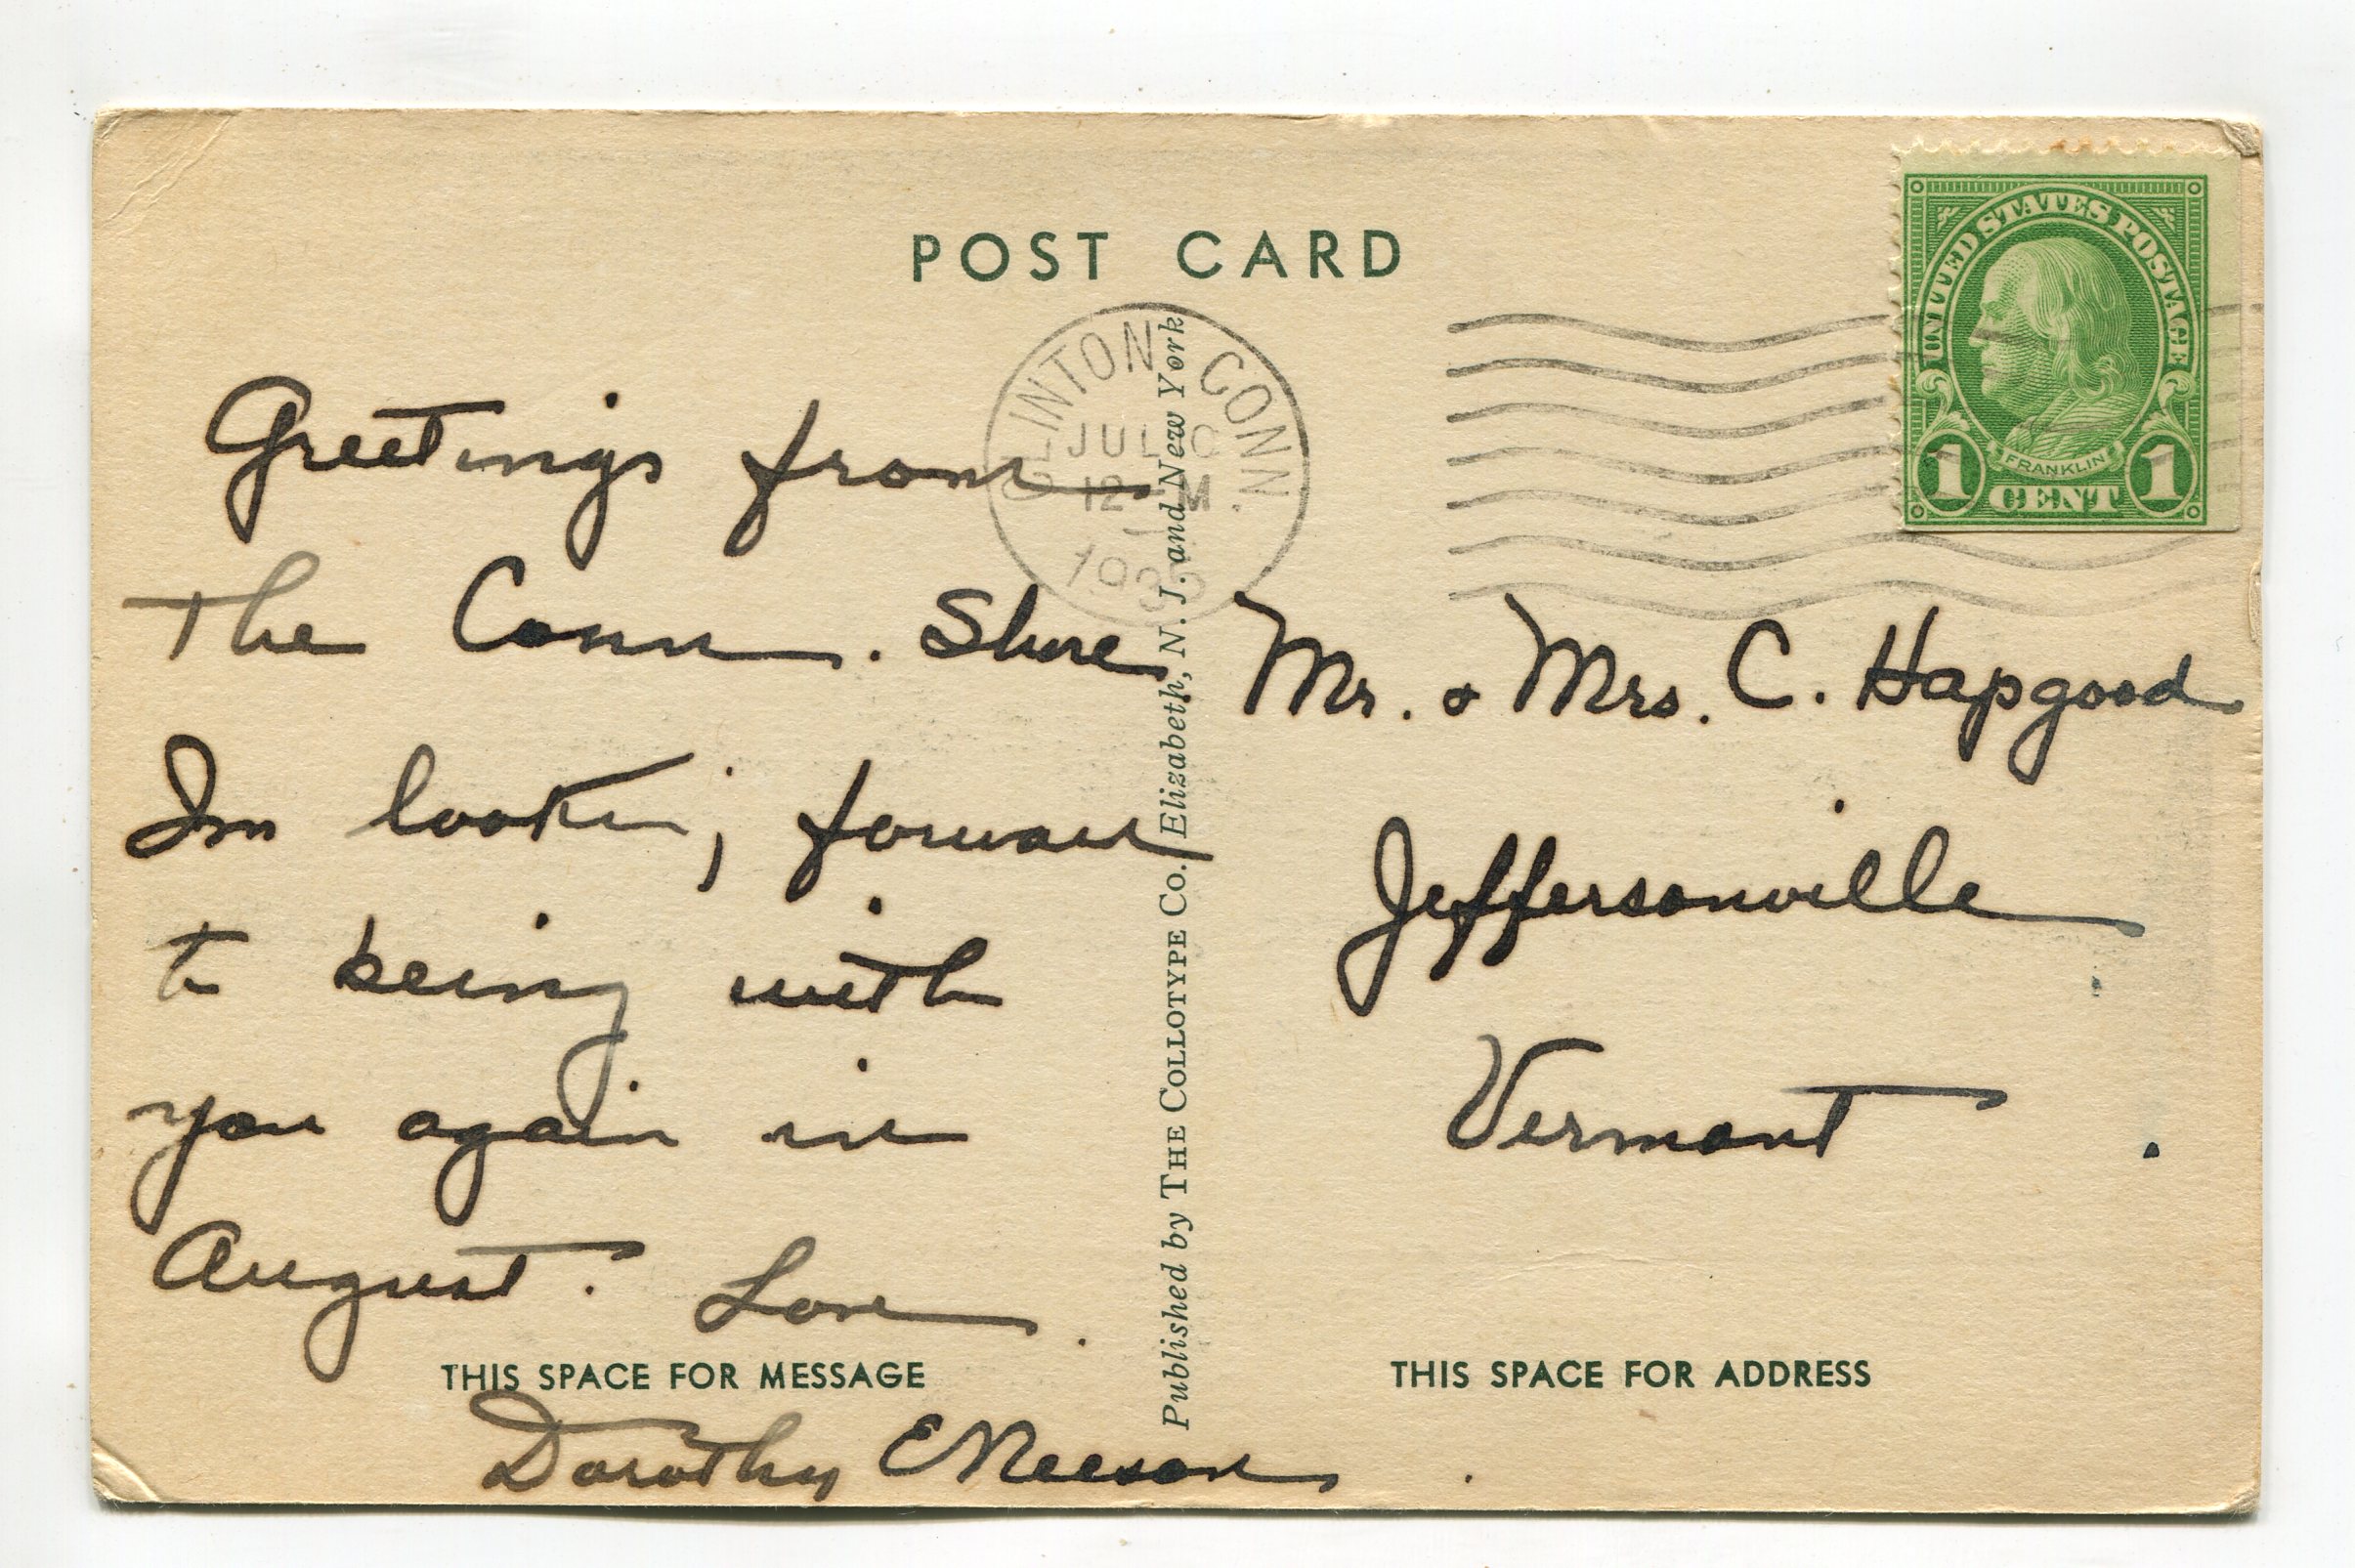 POST CARD
UNITED STATES POSTAGE
FRANKLIN
1 CENT 1
CLINTON CONN.
JUL
12 M
Greetings from
The Conn. Shore
Im lookin; forward
to being with
you again in
August. Love
THIS SPACE FOR MESSAGE
Dorothy E
Published by THE COLLOTYPE CO., Elizabeth, N. J. and New York
Mr. & Mrs. C. Hapgood
Jeffersonville
Vermont
THIS SPACE FOR ADDRESS